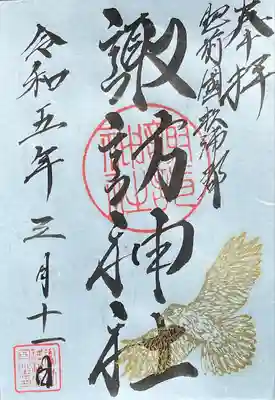 奉拝
肥前国松浦郡
諏訪神社
令和五年三月十一日